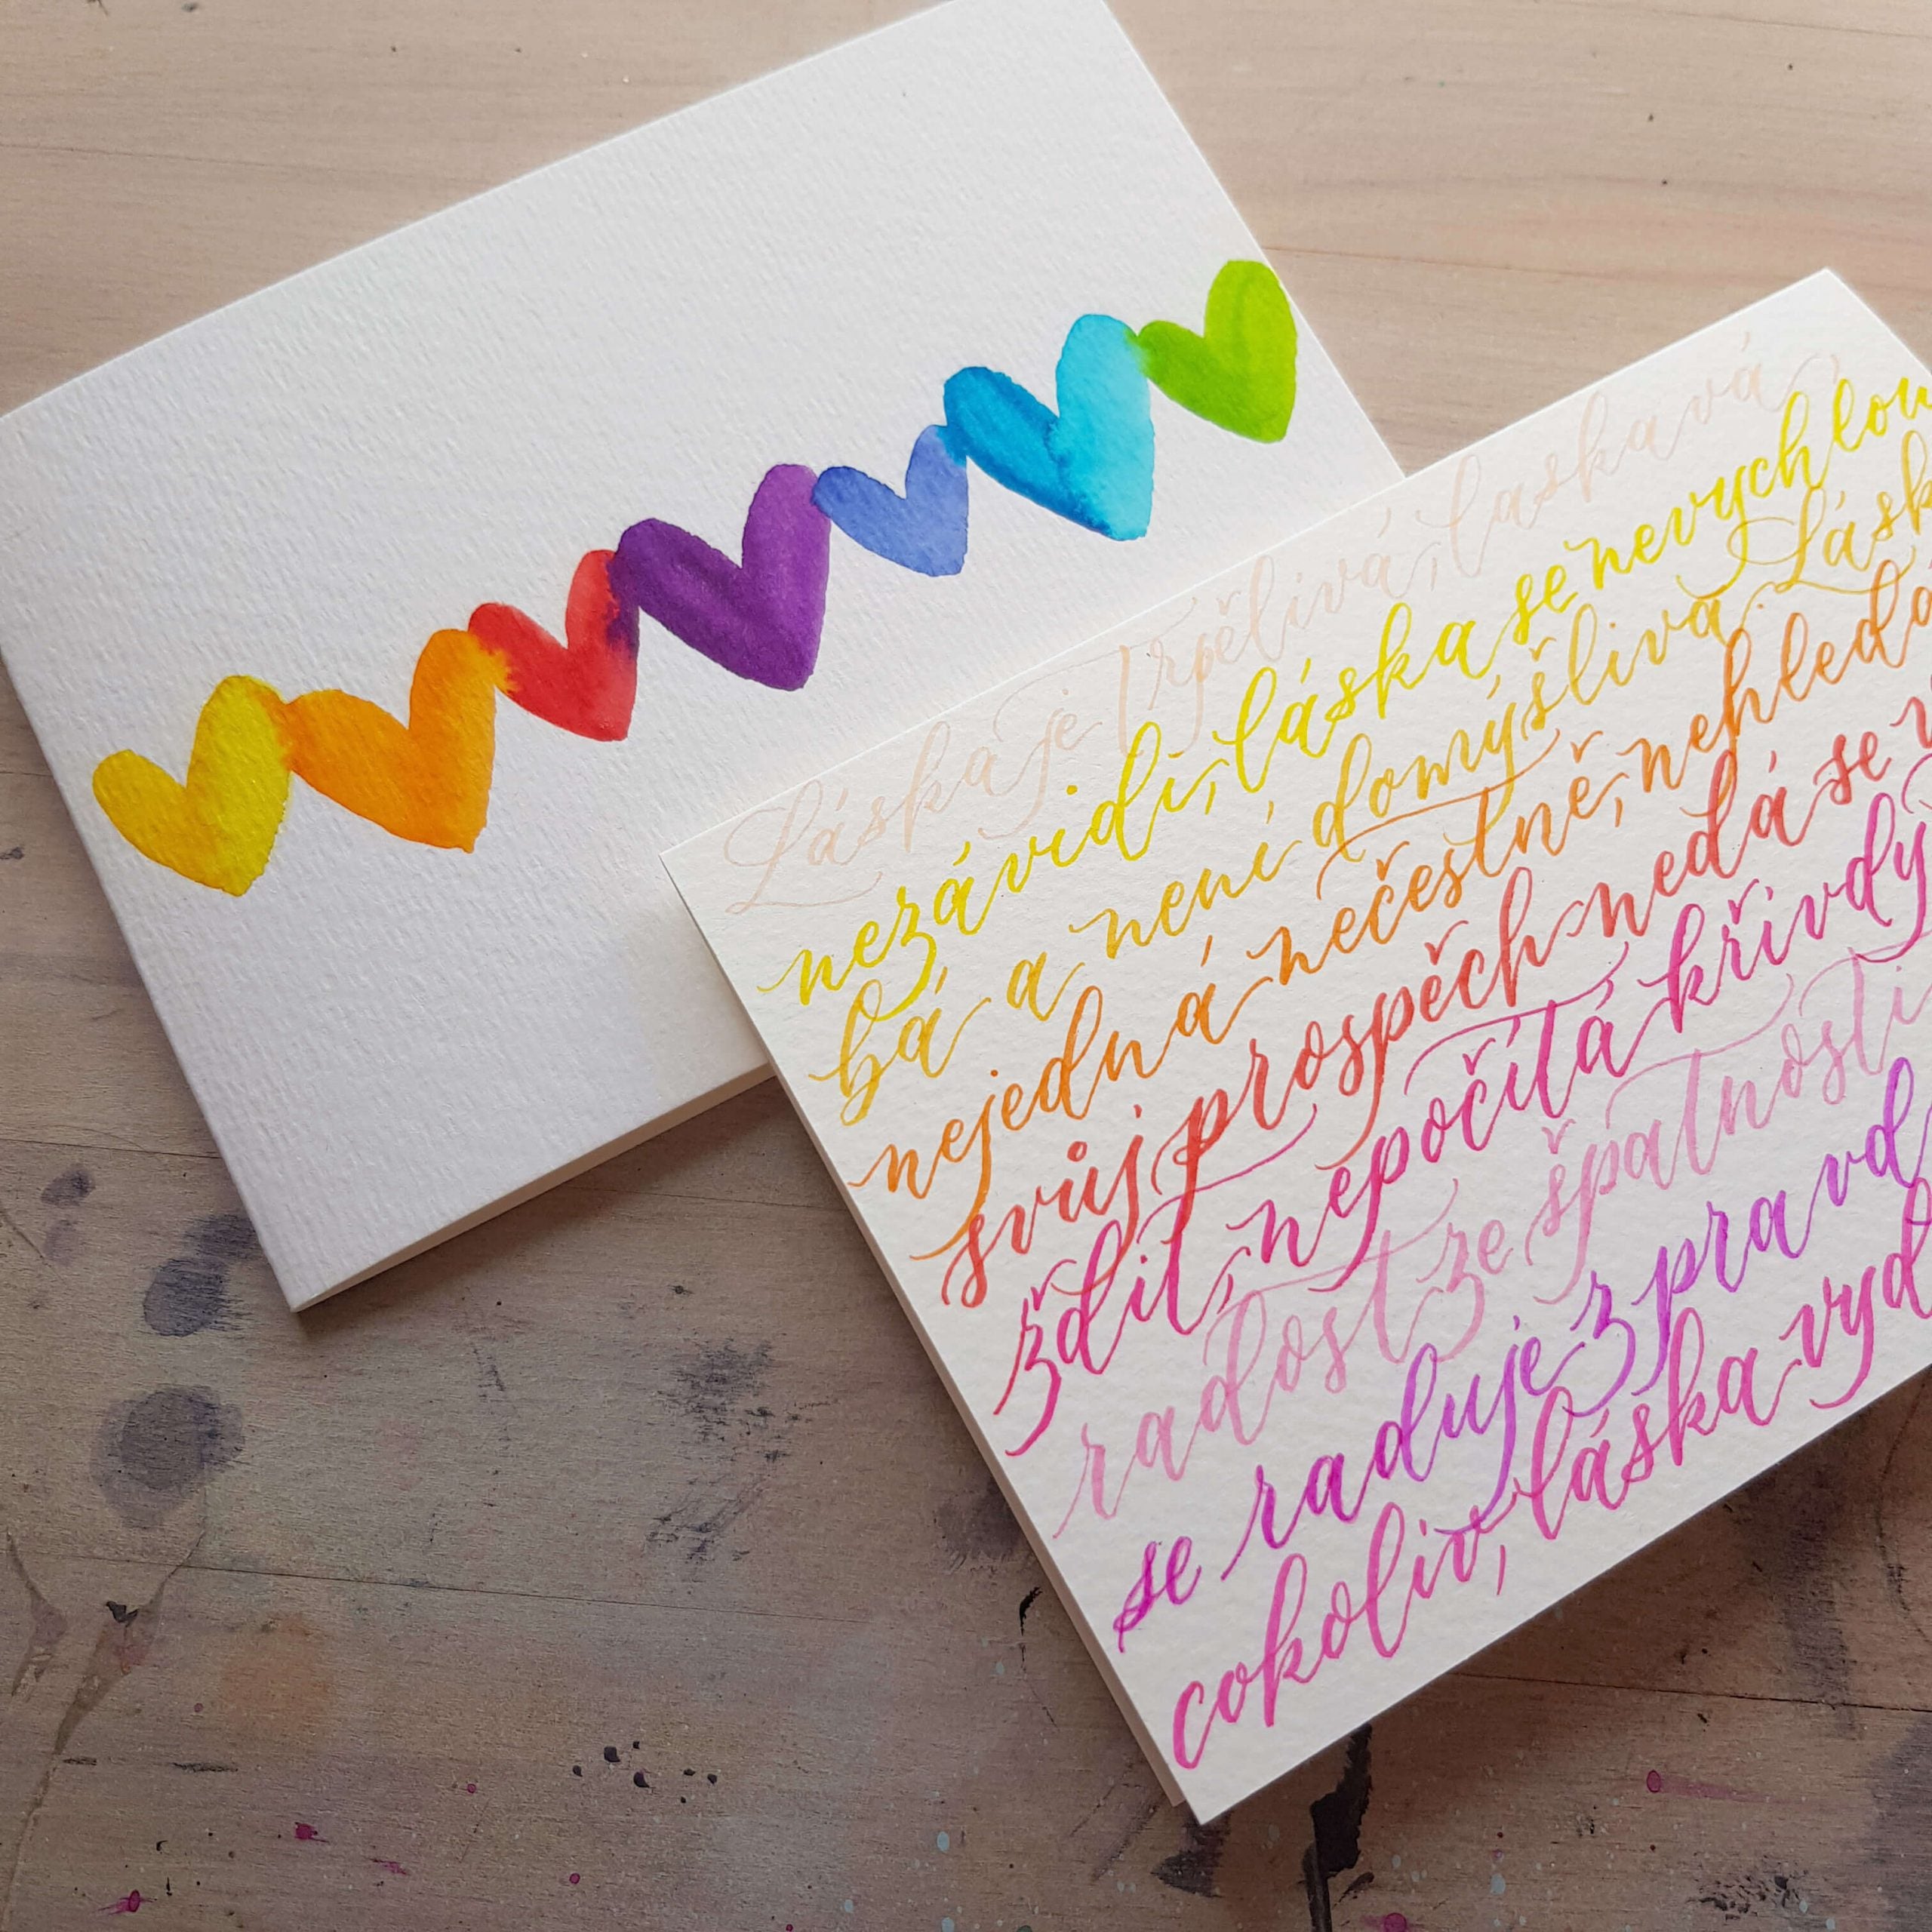 Láska je trpělivá, laskavá
nezávidí, láska se nevychlou
bá a není domýšlivá. Lásk
nejedná nečestně, nehledá
svůj prospěch nedá se v
zdit, nepočítá křivdy
radost ze špatnosti
se raduje z pravd
cokoliv, láska vyd